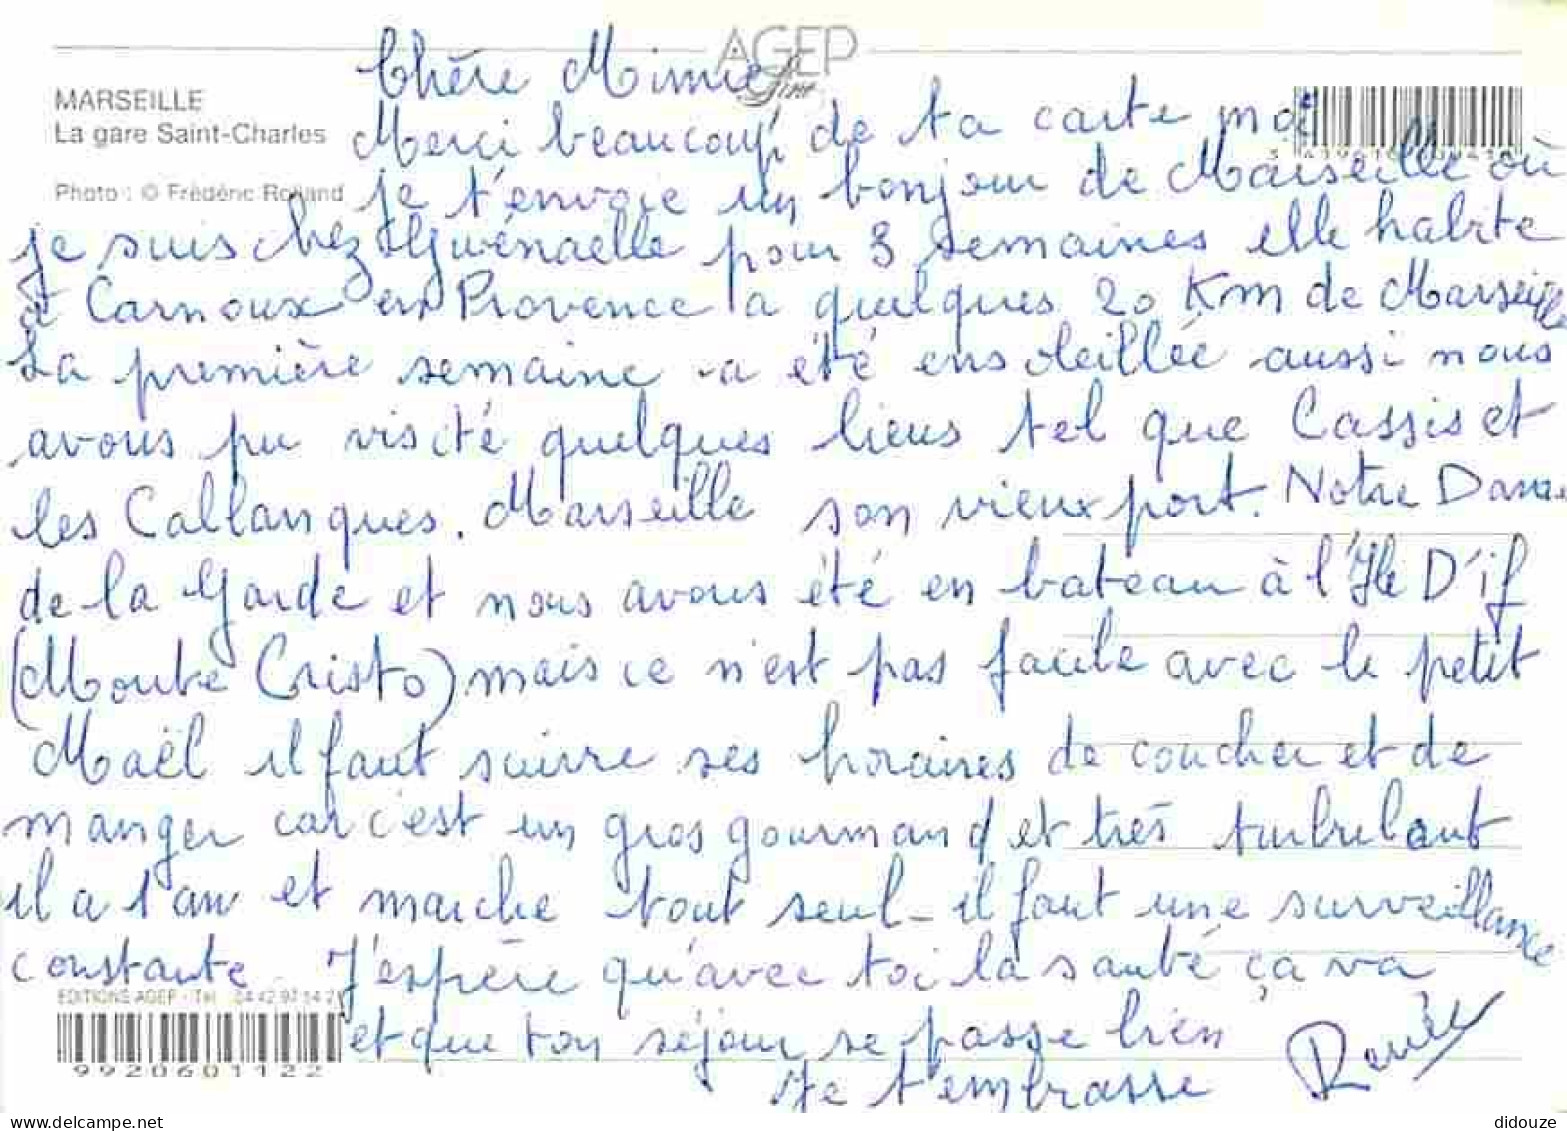 AGEP
Fine
MARSEILLE
La gare Saint-Charles
Photo : © Frédéric Rolland
Chère Mimie
Merci beaucoup de ta carte moi
je t'envoie un bonjour de Marseille où
je suis chez Gwénaelle pour 3 semaines elle habite
à Carnoux en Provence a quelques 20 Km de Marseille
La première semaine a été ensoleillée aussi nous
avons pu visité quelques lieus tel que Cassis et
les Callanques. Marseille son vieux port. Notre Dame
de la Garde et nous avons été en bateau à l'Ile D'if
(Monte Cristo) mais ce n'est pas facile avec le petit
Maël il faut suivre ses horaires de coucher et de
manger car c'est un gros gourmand et très turbulant
il a 1 an et marche tout seul - il faut une surveillance
constante. J'espère qu'avec toi la santé ça va
et que ton séjour se passe bien
Je t'embrasse
EDITIONS AGEP - Tél.
9920601122
didouze